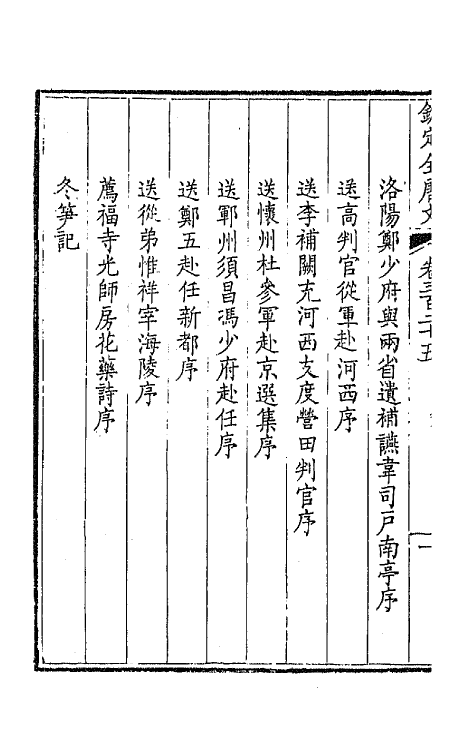 欽定全唐文 卷三百二十五 一
洛陽鄭少府與兩省遺補讌韋司戶南亭序
送高判官從軍赴河西序
送李補闕充河西支度營田判官序
送懷州杜參軍赴京選集序
送鄆州須昌馮少府赴任序
送鄭五赴任新都序
送從弟惟祥宰海陵序
薦福寺光師房花藥詩序
冬筍記